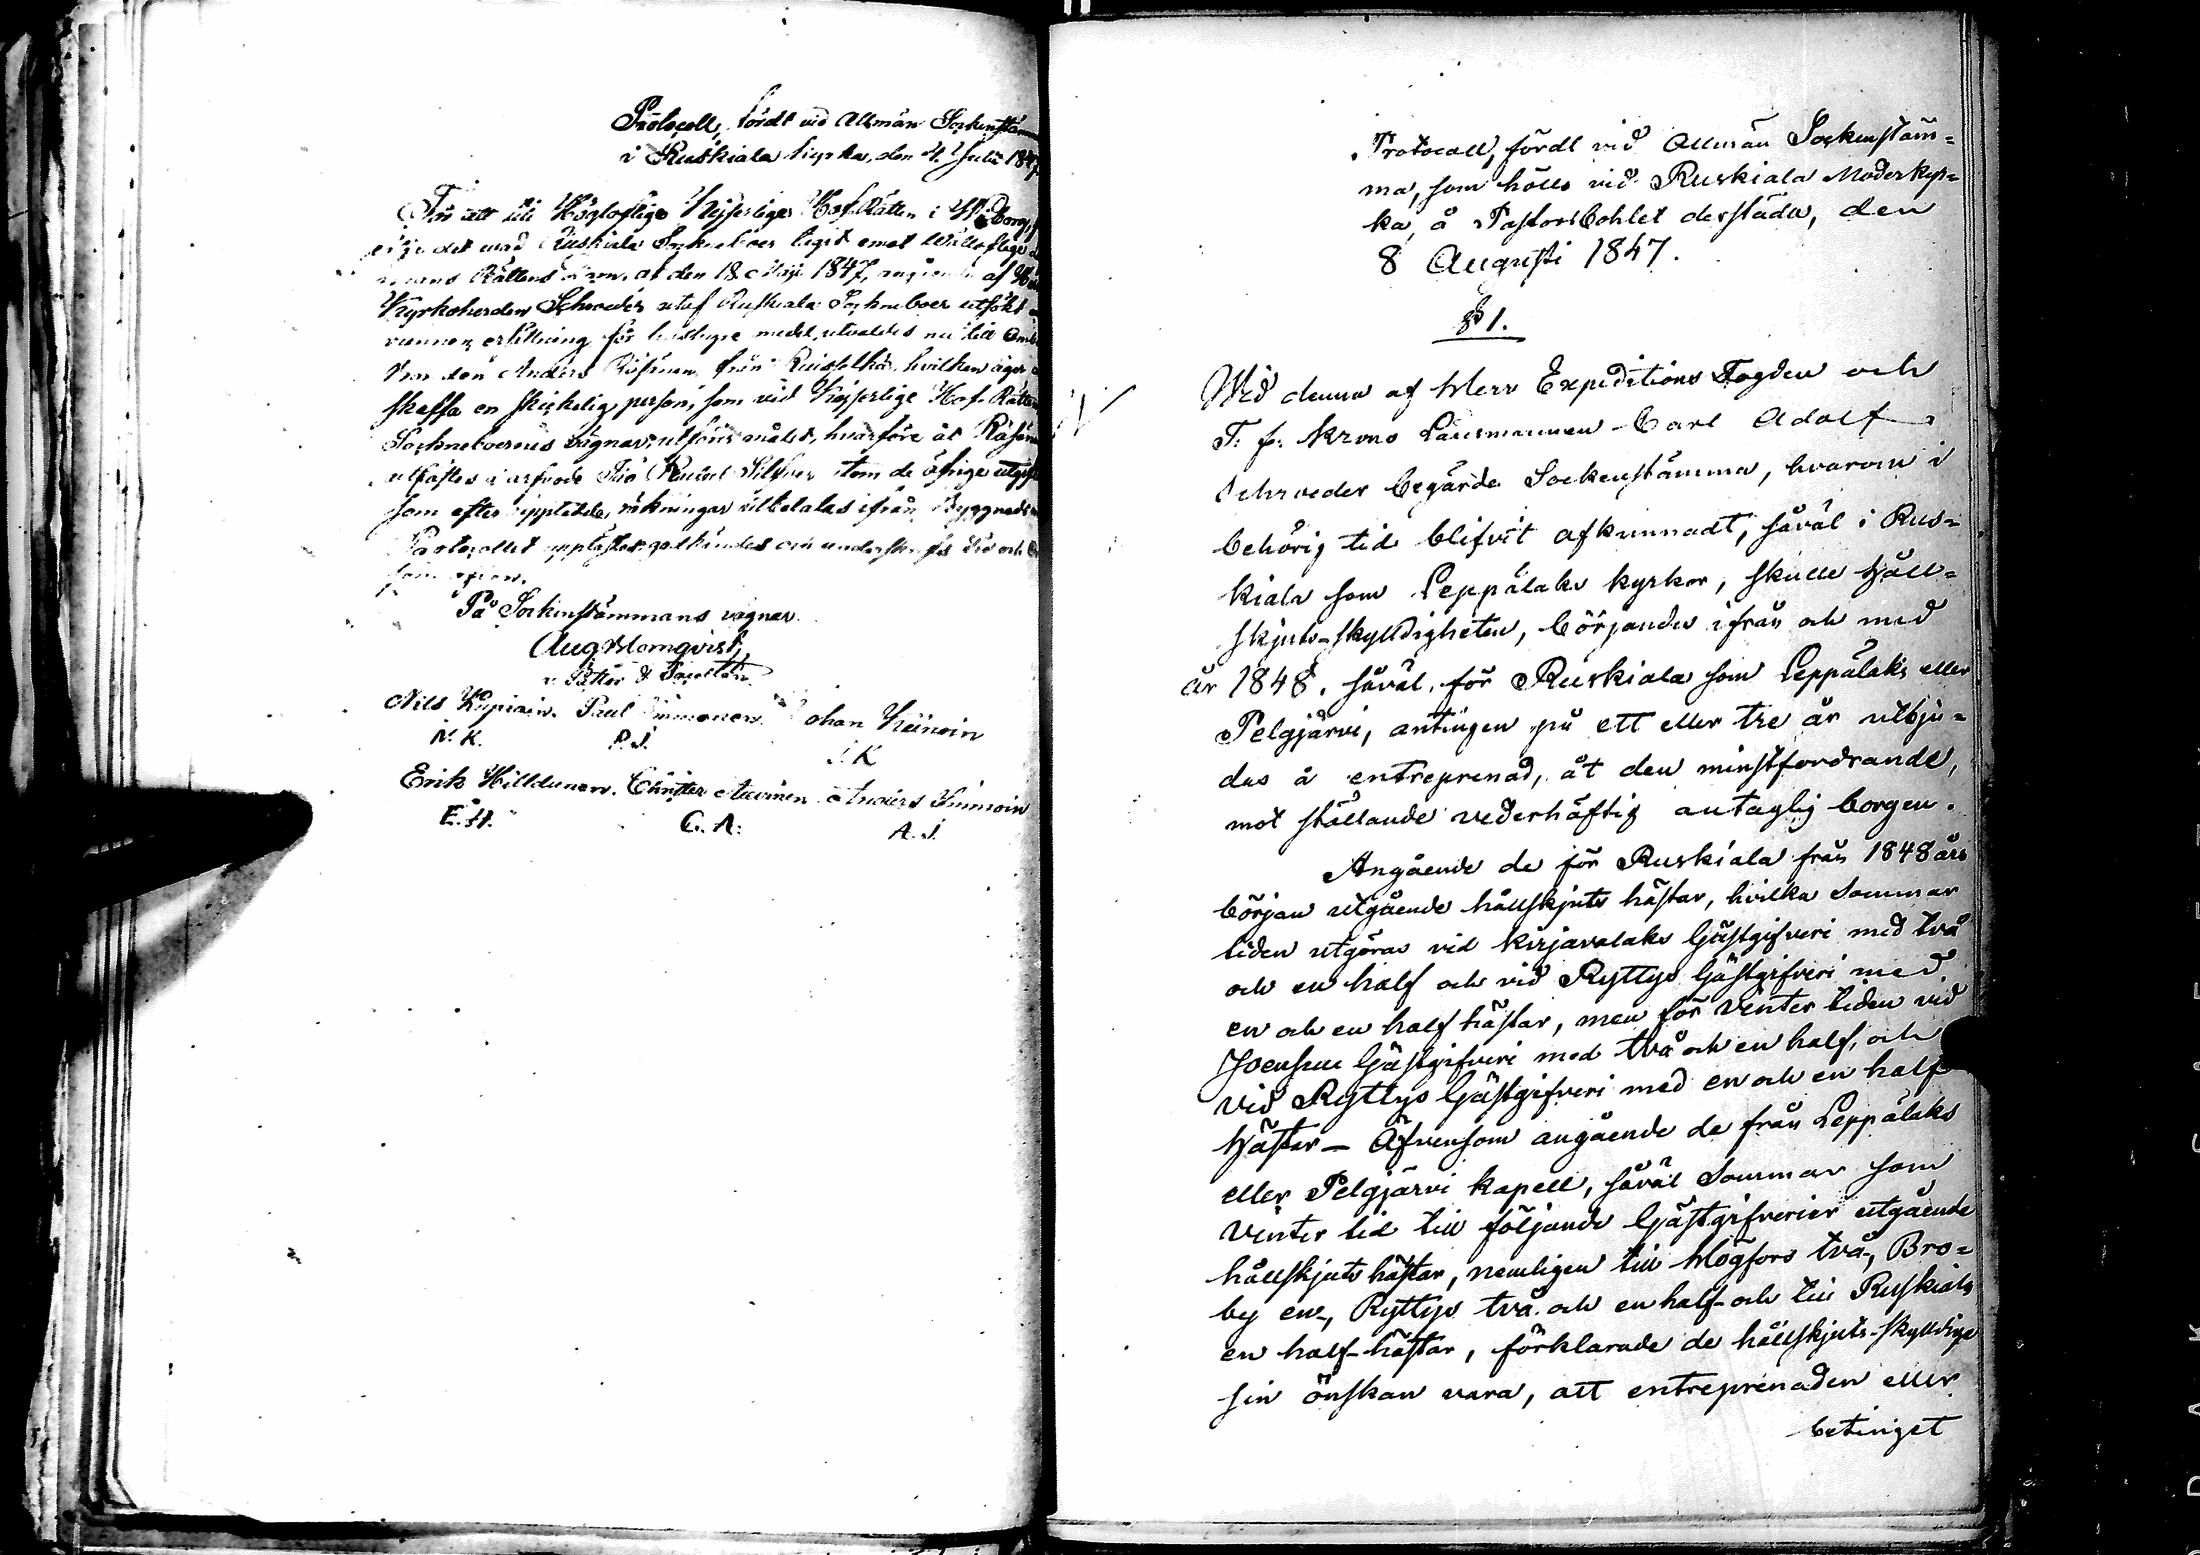 Protocoll, fördt vid Allmän Sockenstäm
i Ruskiala kyrka, den 4. Julii 1847
För att till Högloflige Kejserliga Hof Rätten i Wiborg,
det vad Ruskiala Sockneboer lagit emot Wälloflige
Rättens den 18 Maji 1847, angående af
Kyrkoherden Schroeder utaf Ruskiala Sockneboer utsökt
ersättning för medel, utvaldes nu till
den Anders Räsänen från hvilken äger
skaffa en skickelig person, som vid Kejserlige Hof Rätten
Socknebornes vägnar, utförer målet, hvarföre åt Räsänen
utfästes i arfvode Tio Rubel Silfver, utom de öfrige utgif
som efter räkningar utbetalas ifrån Byggnads
Protocollet upplästes, godkändes och underskrefs
som ofvan.
På Sockenstämmans vägnar
Aug Blomqvist,
v. Pastor
Nils Kupiain. Paul Immonen. Johan Keinoin
N. K. P. I. I. K
Erik Hilldunen. Christer Auvinen Anders Immoin
E. H. C. A. A. I.
Protocoll, fördt vid Allmän Sockenstäm=
ma, som hölls vid Ruskiala Moderkyr=
ka, å Pastorsbohlet derstädes, den
8 Augusti 1847.
§ 1.
Wid denna af Herr Expeditions Fogden och
T. f. Krono Länsmannen Carl Adolf
Schroeder begärde Sockenstämma, hvarom i
behörig tid blifvit afkunnadt, såväl i Rus=
kiala som Leppälaks kyrkor, skulle Håll=
skjuts-skylldigheten, börjandes ifrån och med
år 1848, såväl för Ruskiala som Leppälaks eller
Pelgjärvi, antingen på ett eller tre år utbju=
das å entreprenad, åt den minstfordrande,
mot ställande vederhäftig antaglig borgen.
Angående de för Ruskiala från 1848 års
början utgående hållskjuts hästar, hvilka Sommar
tiden utgöras vid Kirjavalaks Gästgifveri med två
och en half och vid Ryttys Gästgifveri med
en och en half hästar, men för Vinter tiden vid
Joensuu Gästgifveri med två och en half, och
vid Ryttys Gästgifveri med en och en half
Hästar – Äfvensom angående de från Leppälaks
eller Pelgjärvi kapell, såväl Sommar som
Vinter tid till följande Gästgifverier utgående
hållskjuts hästar, nemligen till Högfors två-, Bro=
by en-, Ryttys två och en half- och till Ruskiala
en half-hästar, förklarade de hållskjuts-skylldige
sin önskan vara, att entreprenaden eller
betinget